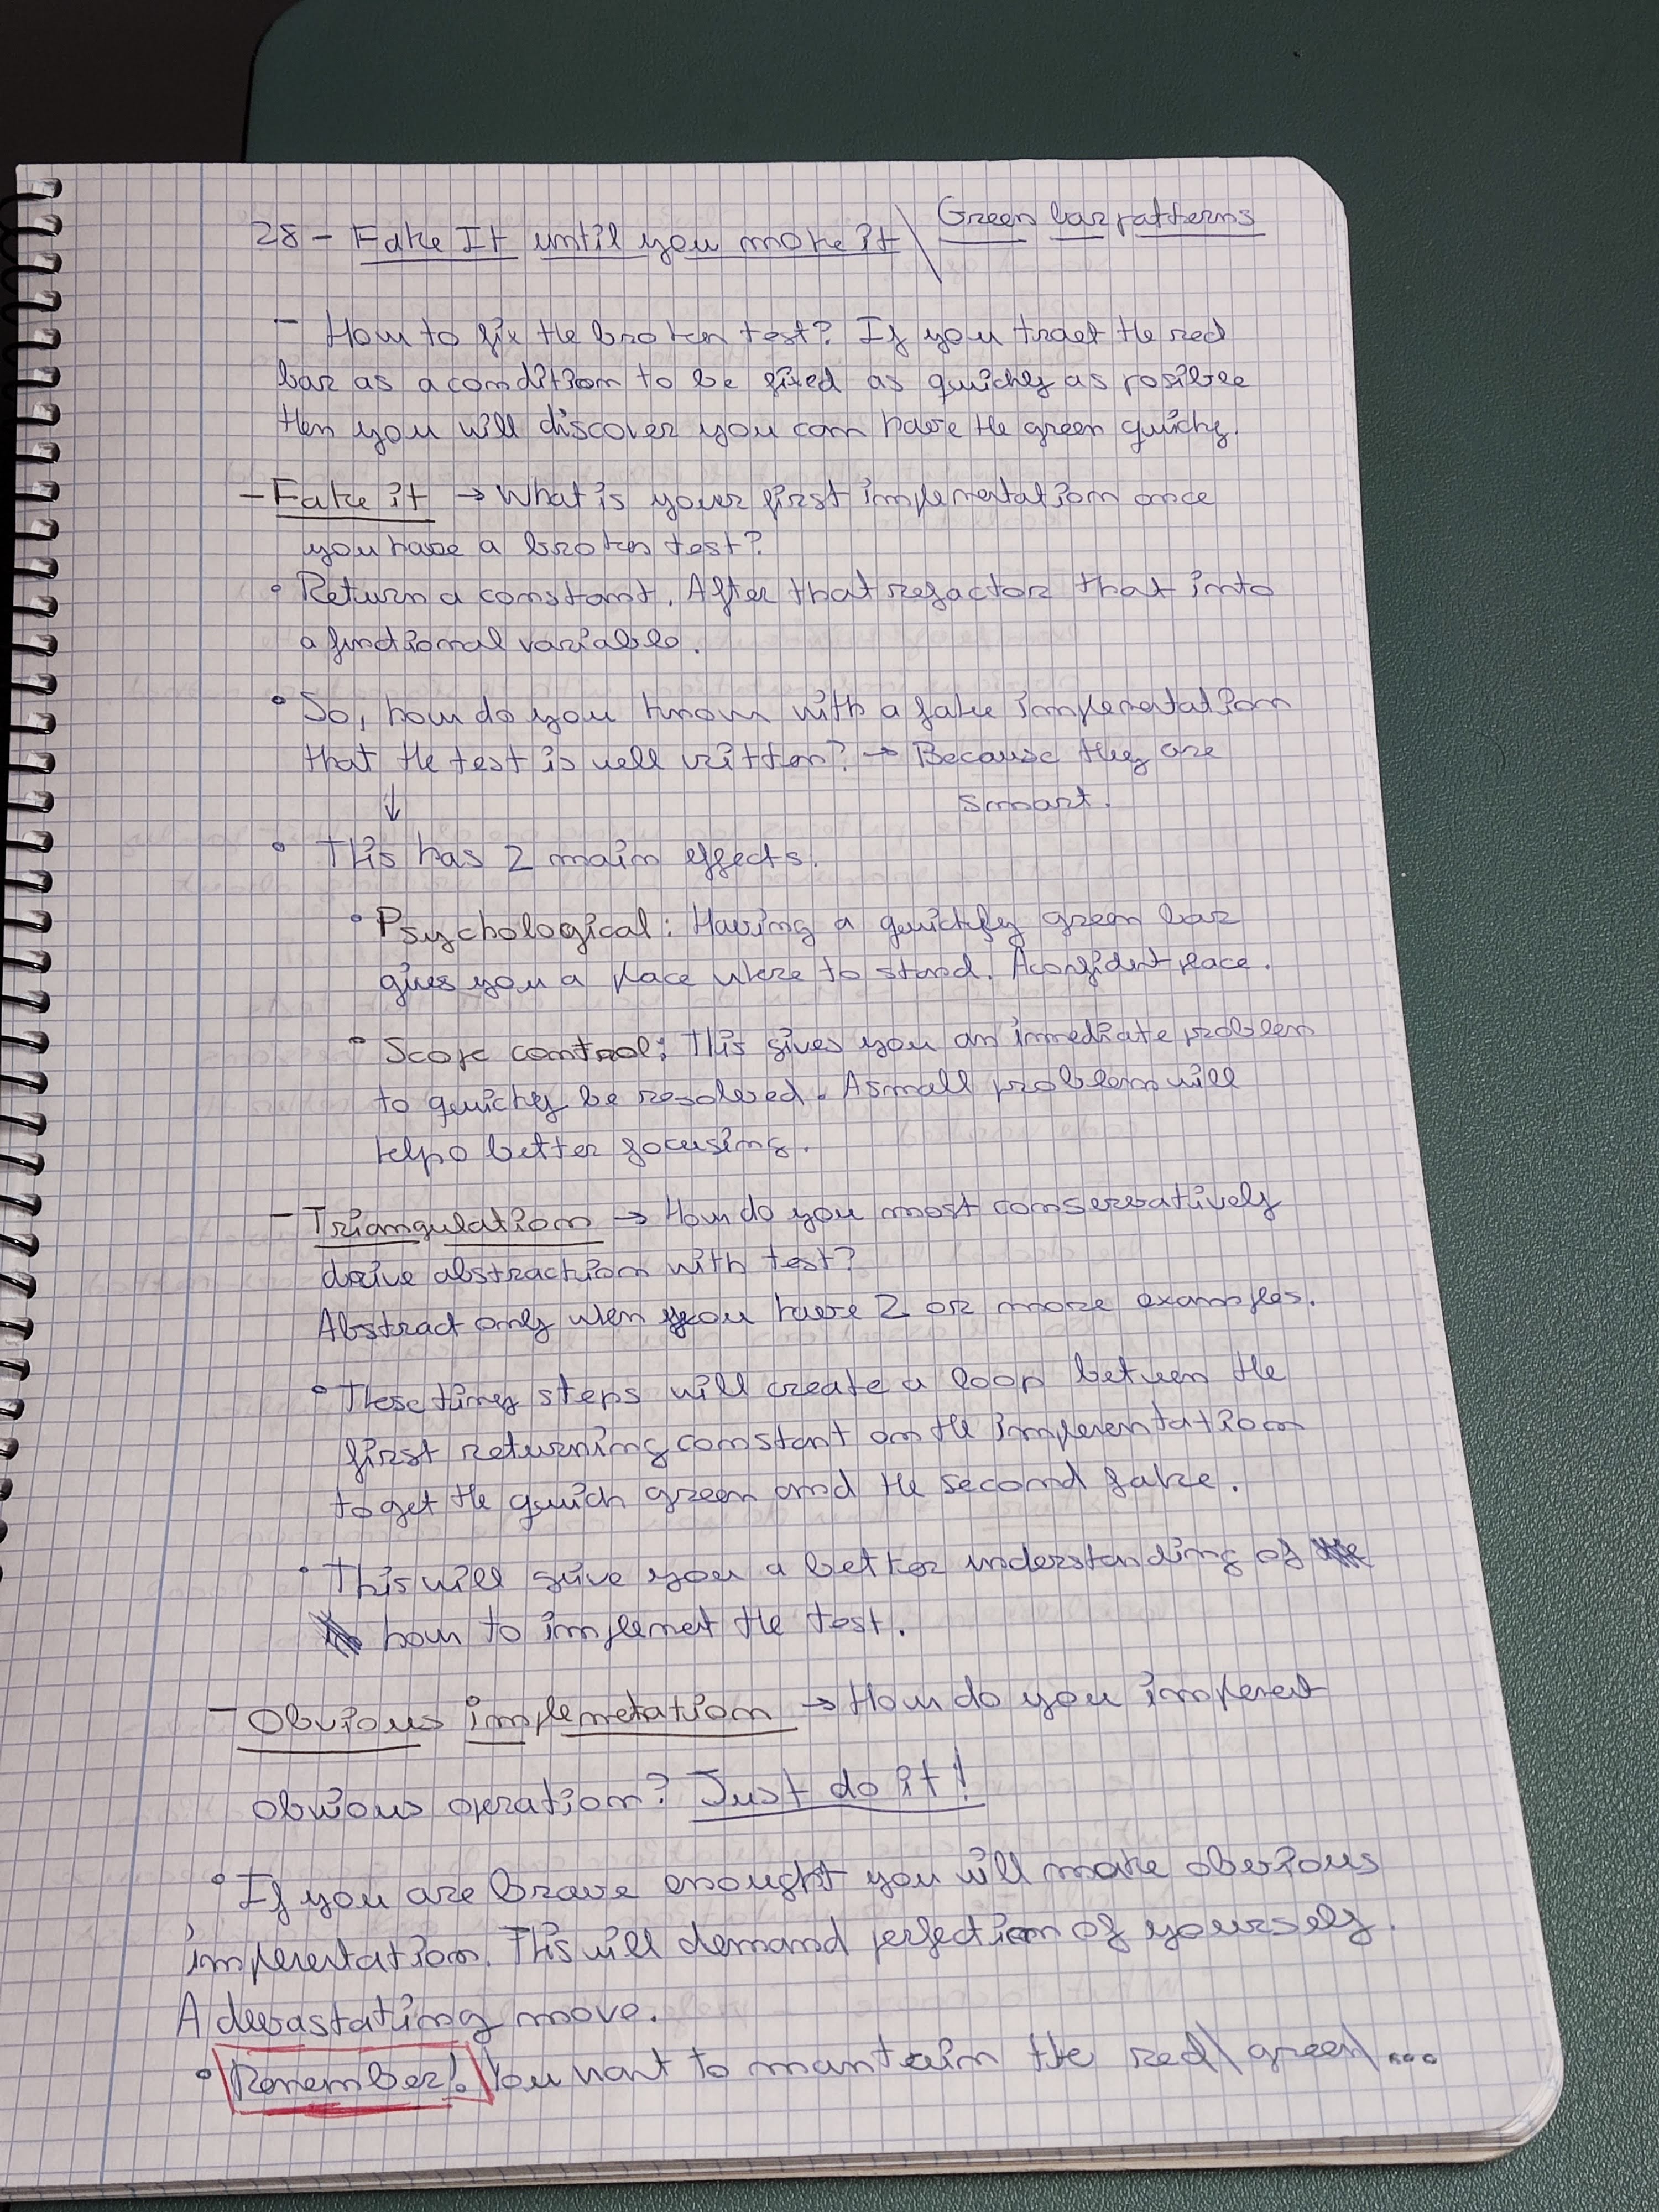 28 - Fake It until you make it \ Green bar patterns
- How to fix the broken test? If you traet the red
bar as a condition to be fixed as quickly as posible
then you will discover you can have the green quickly.
- Fake it → What is your first implementation once
you have a broken test?
• Return a constant. After that refactor that into
a functional variable.
• So, how do you know with a fake implementation
that the test is well written? → Because they are
smart.
↓
• This has 2 main effects.
• Psychological: Having a quickly green bar
gives you a place where to stand. A confident place.
• Scope control: This gives you an immediate problem
to quickly be resolved. A small problem will
help better focusing.
- Triangulation → How do you most conservatively
drive abstraction with test?
Abstract only when you have 2 or more examples.
• These tiny steps will create a loop between the
first returning constant on the implementation
to get the quick green and the second fake.
• This will give you a better understanding of
how to implemet the test.
- Obvious implemetation → How do you implement
obvious operation? Just do it!
• If you are brave enought you will make obvious
implementation. This will demand perfection of yourself.
A devastating move.
• Remember! You want to mantain the red\ green\ ...